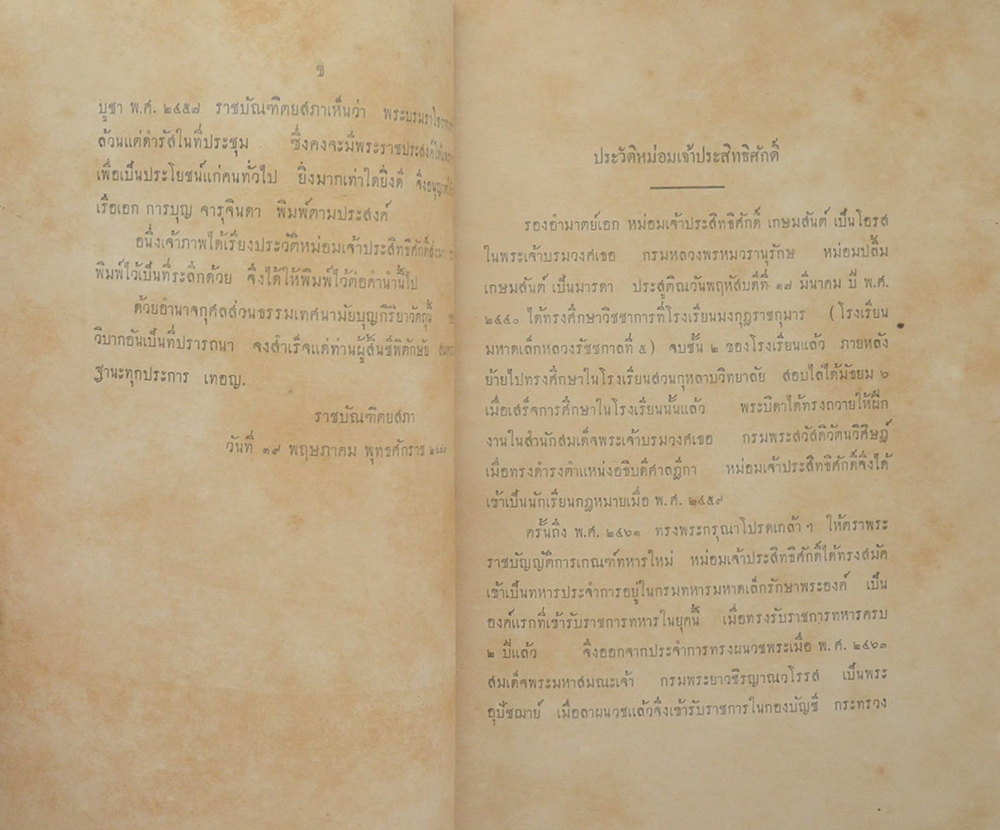 ข
บูชา พ.ศ. ๒๔๕๗ ราชบัณฑิตยสภาเห็นว่า
ล้วนแต่ดำรัสในที่ประชุม ซึ่งคงจะมีพระราชประสงค์ให้
เพื่อเป็นประโยชน์แก่คนทั่วไป ยิ่งมากเท่าใดยิ่งดี จึง
เรือเอก การบุญ จารุจินดา พิมพ์ตามประสงค์
อนึ่งเจ้าภาพได้เรียงประวัติหม่อมเจ้าประสิทธิศักดิ์
พิมพ์ไว้เป็นที่ระลึกด้วย จึงได้ให้พิมพ์ไว้ต่อคำนำนี้ไป
ด้วยอำนาจกุศลส่วนธรรมเทศนามัยบุญกิริยาวัตถุนี้
วิบากอันเป็นที่ปรารถนา จงสำเร็จแด่ท่านผู้สิ้นชีพิตักษัย
ฐานะทุกประการ เทอญ.
ราชบัณฑิตยสภา
วันที่ ๑๙ พฤษภาคม พุทธศักราช
ประวัติหม่อมเจ้าประสิทธิศักดิ์
รองอำมาตย์เอก หม่อมเจ้าประสิทธิศักดิ์ เกษมสันต์ เป็นโอรส
ในพระเจ้าบรมวงศ์เธอ กรมหลวงพรหมวรานุรักษ หม่อมปลื้ม
เกษมสันต์ เป็นมารดา ประสูติณวันพฤหัสบดีที่ ๑๗ มีนาคม ปี พ.ศ.
๒๔๔๐ ได้ทรงศึกษาวิชชาการที่โรงเรียนมงกุฎราชกุมาร (โรงเรียน
มหาดเล็กหลวงรัชชกาลที่ ๕) จบชั้น ๒ ของโรงเรียนแล้ว ภายหลัง
ย้ายไปทรงศึกษาในโรงเรียนสวนกุหลาบวิทยาลัย สอบไล่ได้มัธยม ๖
เมื่อเสร็จการศึกษาในโรงเรียนนั้นแล้ว พระบิดาได้ทรงถวายให้ฝึก
งานในสำนักสมเด็จพระเจ้าบรมวงศ์เธอ กรมพระสวัสดิวัตนวิศิษฎ์
เมื่อทรงดำรงตำแหน่งอธิบดีศาลฎีกา หม่อมเจ้าประสิทธิศักดิ์จึงได้
เข้าเป็นนักเรียนกฎหมายเมื่อ พ.ศ. ๒๔๕๙
ครั้นถึง พ.ศ. ๒๔๖๑ ทรงพระกรุณาโปรดเกล้า ฯ ให้ตราพระ
ราชบัญญัติการเกณฑ์ทหารใหม่ หม่อมเจ้าประสิทธิศักดิ์ได้ทรงสมัค
เข้าเป็นทหารประจำการอยู่ในกรมทหารมหาดเล็กรักษาพระองค์ เป็น
องค์แรกที่เข้ารับราชการทหารในยุคนี้ เมื่อทรงรับราชการทหารครบ
๒ ปีแล้ว จึงออกจากประจำการทรงผนวชพระเมื่อ พ.ศ. ๒๔๖๓
สมเด็จพระมหาสมณะเจ้า กรมพระยาวชิรญาณวโรรส เป็นพระ
อุปัชฌาย์ เมื่อลาผนวชแล้วจึงเข้ารับราชการในกองบัญชี กระทรวง